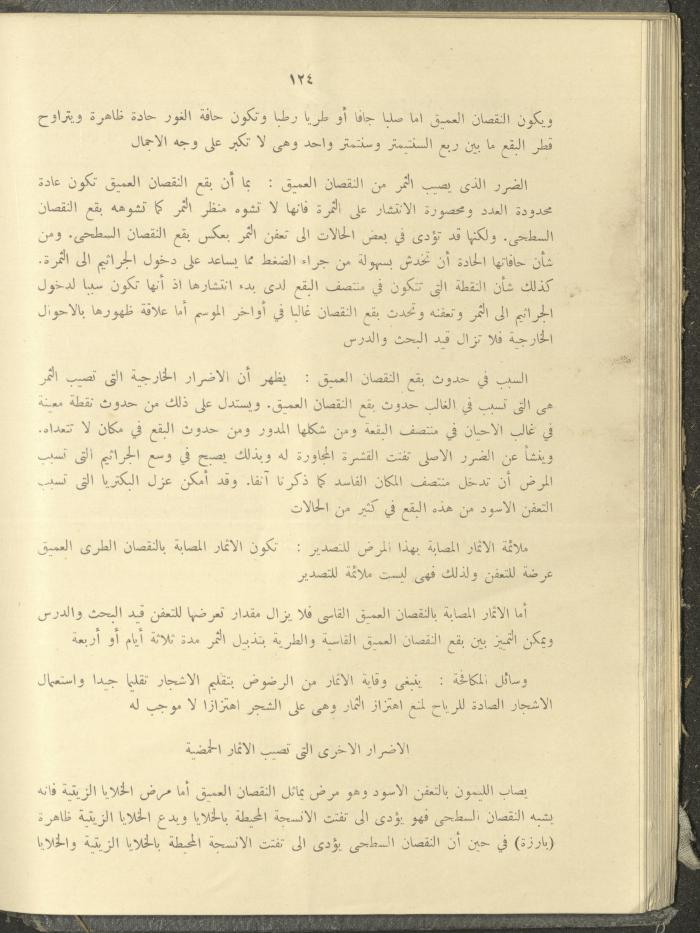 ١٢٤
ويكون النقصان العميق اما صلبا جافا أو طريا رطبا وتكون حافة الغور حادة ظاهرة ويتراوح
قطر البقع ما بين ربع السنتيمتر وسنتمتر واحد وهى لا تكبر على وجه الاجمال
الضرر الذى يصيب الثمر من النقصان العميق : بما أن بقع النقصان العميق تكون عادة
محدودة العدد ومحصورة الانتشار على الثمرة فانها لا تشوه منظر الثمر كما تشوهه بقع النقصان
السطحى. ولكنها قد تؤدى في بعض الحالات الى تعفن الثمر بعكس بقع النقصان السطحى. ومن
شأن حافاتها الحادة أن تخدش بسهولة من جراء الضغط مما يساعد على دخول الجراثيم الى الثمرة.
كذلك شأن النقطة التى تتكون في منتصف البقع لدى بدء انتشارها اذ أنها تكون سببا لدخول
الجراثيم الى الثمر وتعفنه وتحدث بقع النقصان غالبا في أواخر الموسم أما علاقة ظهورها بالاحوال
الخارجية فلا تزال قيد البحث والدرس
السبب في حدوث بقع النقصان العميق : يظهر أن الاضرار الخارجية التى تصيب الثمر
هى التى تسبب في الغالب حدوث بقع النقصان العميق. ويستدل على ذلك من حدوث نقطة معينة
في غالب الاحيان في منتصف البقعة ومن شكلها المدور ومن حدوث البقع في مكان لا تتعداه.
وينشأ عن الضرر الاصلى تفتت القشرة المجاورة له وبذلك يصبح في وسع الجراثيم التى تسبب
المرض أن تدخل منتصف المكان الفاسد كما ذكرنا آنفا. وقد أمكن عزل البكتريا التى تسبب
التعفن الاسود من هذه البقع في كثير من الحالات
ملائمة الاثمار المصابة بهذا المرض للتصدير : تكون الاثمار المصابة بالنقصان الطرى العميق
عرضة للتعفن ولذلك فهى ليست ملائمة للتصدير
أما الاثمار المصابة بالنقصان العميق القاسى فلا يزال مقدار تعرضها للتعفن قيد البحث والدرس
ويمكن التمييز بين بقع النقصان العميق القاسية والطرية بتذبيل الثمر مدة ثلاثة أيام أو أربعة
وسائل المكافحة : ينبغى وقاية الاثمار من الرضوض بتقليم الاشجار تقليما جيدا واستعمال
الاشجار الصادة للرياح لمنع اهتزاز الثمار وهى على الشجر اهتزازا لا موجب له
الاضرار الاخرى التى تصيب الاثمار الحمضية
يصاب الليمون بالتعفن الاسود وهو مرض يماثل النقصان العميق أما مرض الخلايا الزيتية فانه
يشبه النقصان السطحى فهو يؤدى الى تفتت الانسجة المحيطة بالخلايا ويدع الخلايا الزيتية ظاهرة
(بارزة) في حين أن النقصان السطحى يؤدى الى تفتت الانسجة المحيطة بالخلايا الزيتية والخلايا